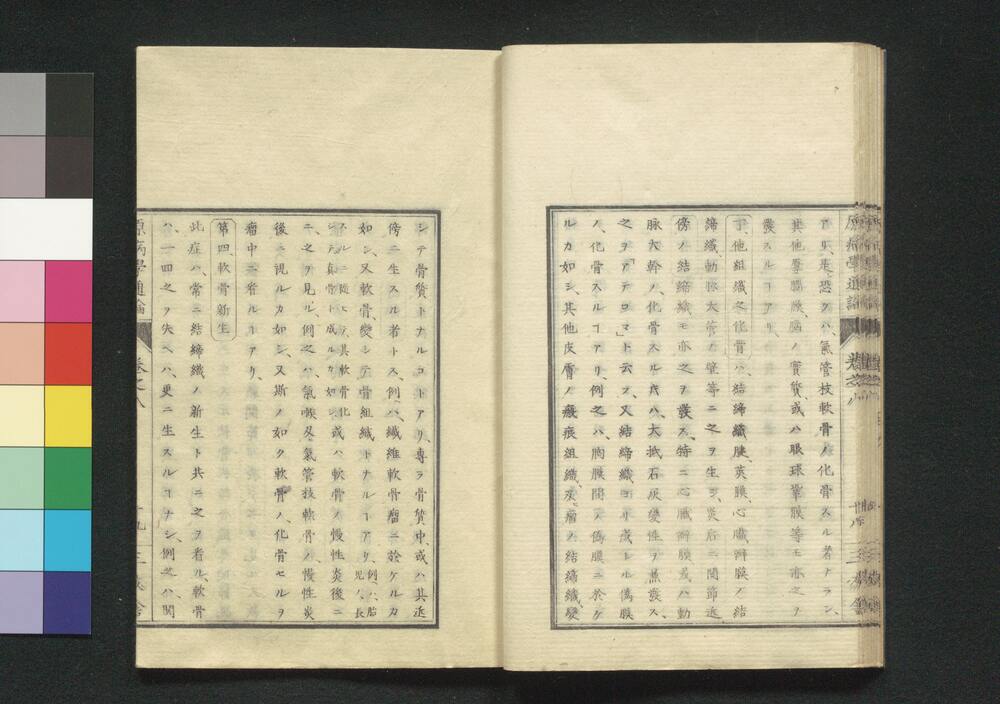 アリ、是恐クハ、氣管枝軟骨ノ化骨スル者ナラン、
其他厚腦膜、腦ノ實質、或ハ眼球鞏膜等モ亦之ヲ
發スルヿアリ、
子、他組織之化骨ハ、結締織腱莢膜、心臟瓣膜ノ結
締織、動脉大管ノ壁等ニ之ヲ生ジ、炎后ニ関節近
傍ノ結締織モ亦之ヲ發ス、特ニ心臟瓣膜或ハ動
脉大幹ノ化骨スル氏ハ、大抵石灰變性ヲ兼發ス、
之ヲ「アテロマ」ト云フ、又結締織ヨリ成レル僞膜
ノ、化骨スルヿアリ、例之ハ、胸膜間ノ僞膜ニ於ケ
ルカ如シ、其他皮膚ノ瘢痕組織、及瘤ノ結締織變
原病學通論
卷之八
三葵舍
シテ骨質トナルコトアリ、專ラ骨質中、或ハ其近
傍ニ生スル者トス、例之ハ纎維軟骨瘤ニ於ケルカ
如シ、又軟骨變シテ骨組織トナルヿアリ、例之ハ胎兒ノ長
スルニ隨ヒテ其軟骨化シテ眞骨ト成ルカ如シ或ハ軟骨ノ慢性炎後ニ
ニ之ヲ見ル、例之ハ氣喉及氣管枝軟骨ノ慢性炎
後ニ視ルカ如シ、又斯ノ如ク軟骨ノ化骨セルヲ
瘤中ニ看ルヿアリ、
第四、軟骨新生
此症ハ、常ニ結締織ノ新生ト共ニ之ヲ看ル、軟骨
ハ一囘之ヲ失ヘハ、更ニ生スルヿナシ、例之ハ関
原病學通論
卷之八
十九
三葵舍